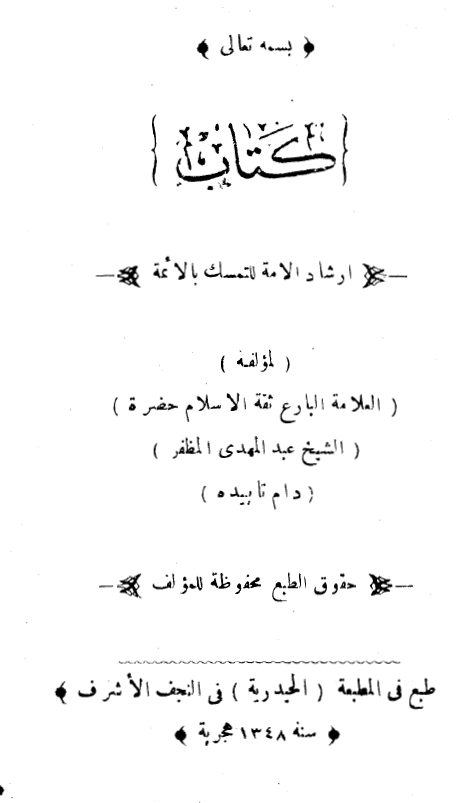 ﴿ بسمه تعالى ﴾
{ كتاب }
ارشاد الامة للتمسك بالأئمة
( لمؤلفه )
( العلامة البارع ثقة الاسلام حضرة )
( الشيخ عبد المهدى المظفر )
( دام تابيده )
حقوق الطبع محفوظة للمؤلف
طبع فى المطبعة ( الحيدرية ) فى النجف الأشرف ﴾
﴿ سنه ١٣٤٨ هجرية ﴾